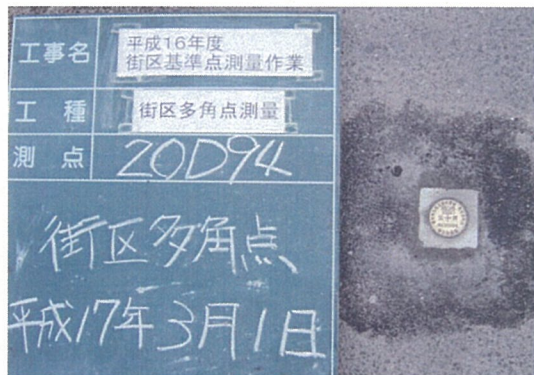 工事名
平成16年度
街区基準点測量作業
工種
街区多角点測量
測点
20D94
街区多角点
平成17年3月1日